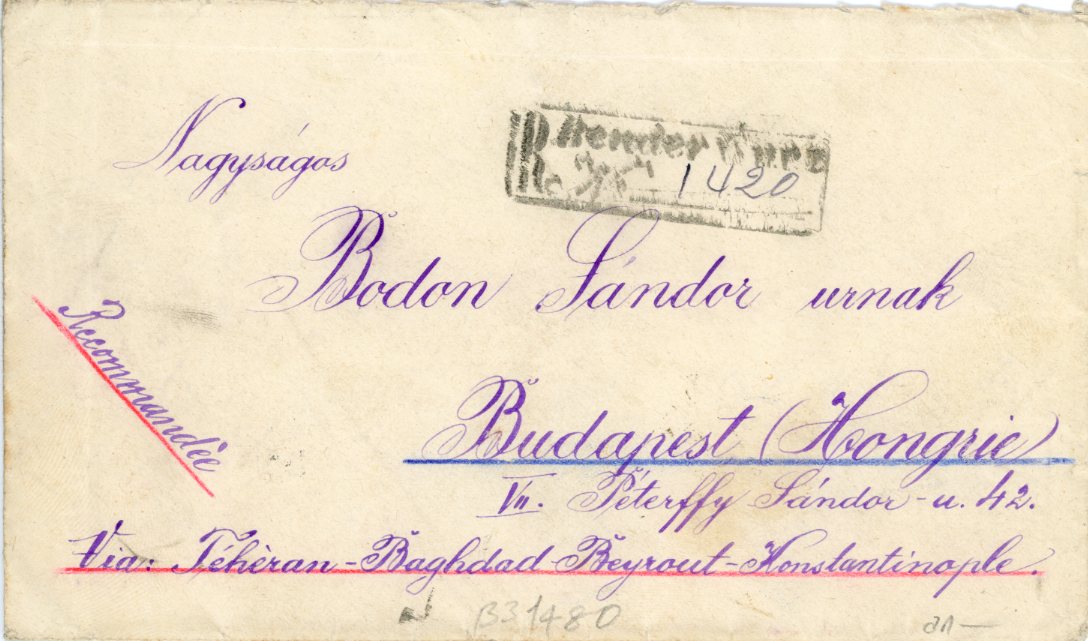 Nagyságos
R
1420
Bodon Sándor urnak
Recommandée
Budapest (Hongrie)
VII. Péterffy Sándor-u. 42.
Via: Téhèran-Baghdad-Beyrout-Konstantinople.
B31480